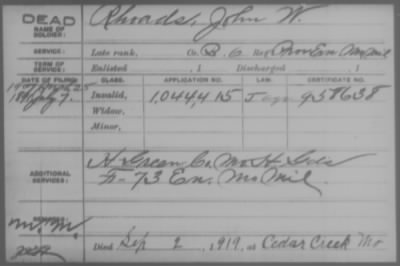 DEAD
NAME OF SOLDIER: Rhoads, John W.
SERVICE: Late rank, Co. B. 6 Reg. Prov En. Mo Mil
TERM OF SERVICE: Enlisted , 1 Discharged , 1
DATE OF FILING. CLASS. APPLICATION NO. LAW. CERTIFICATE NO.
July 7. Invalid, 1,044415 958638
Widow,
Minor,
ADDITIONAL SERVICES: Green Co Mo H. Gds
F- 73 En. Mo Mil.
Died Sep 2, 1919, at Cedar Creek Mo